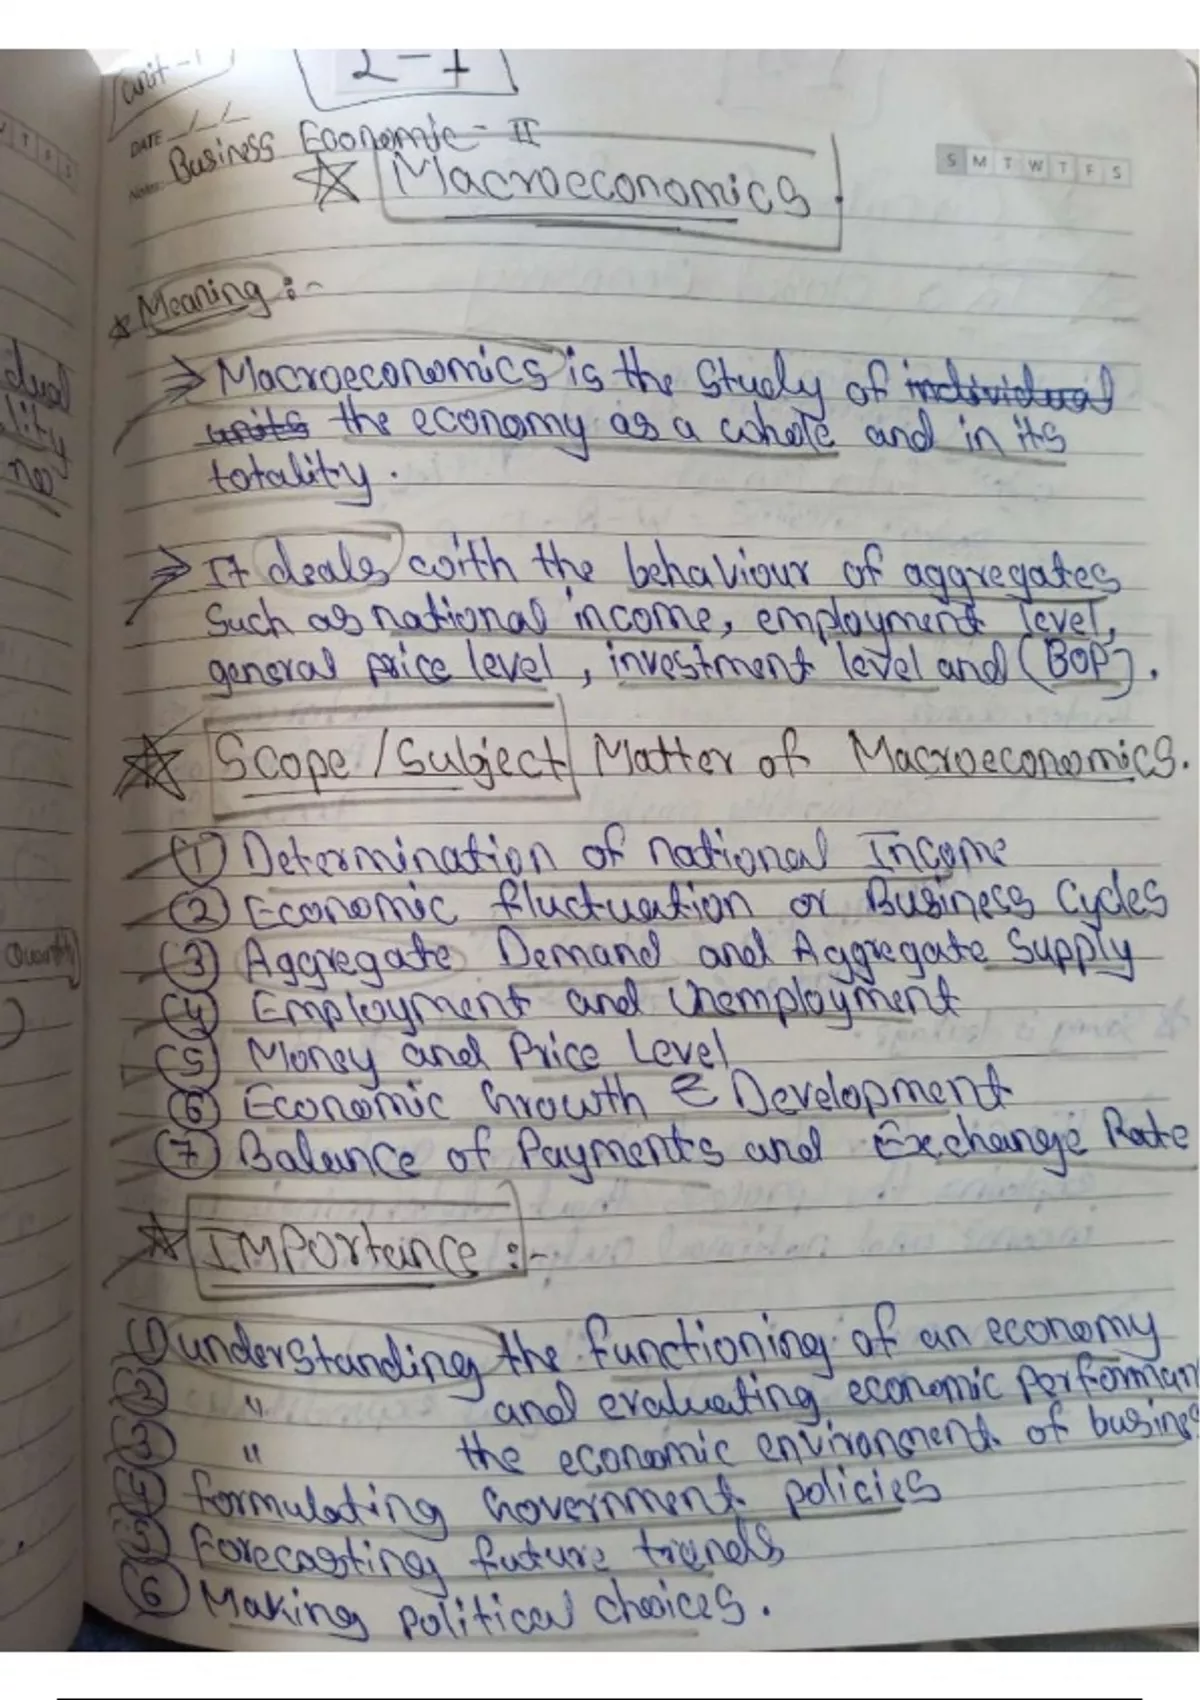 Unit-1
2-1
DATE
Business Economic - II
S M T W T F S
Macroeconomics
Meaning :-
Macroeconomics is the study of individual
units the economy as a whole and in its
totality.
It deals with the behaviour of aggregates
such as national income, employment level,
general price level, investment level and (BOP).
Scope/Subject Matter of Macroeconomics.
① Determination of national Income
② Economic fluctuation or Business Cycles
③ Aggregate Demand and Aggregate Supply
④ Employment and Unemployment
⑤ Money and Price Level
⑥ Economic Growth & Development
⑦ Balance of Payments and Exchange Rate
IMPortance :-
① understanding the functioning of an economy
② " and evaluating economic performan
③ " the economic environment of busines
④ formulating Government policies
⑤ Forecasting future trends
⑥ Making political choices.
dual
lity
no
Quantity